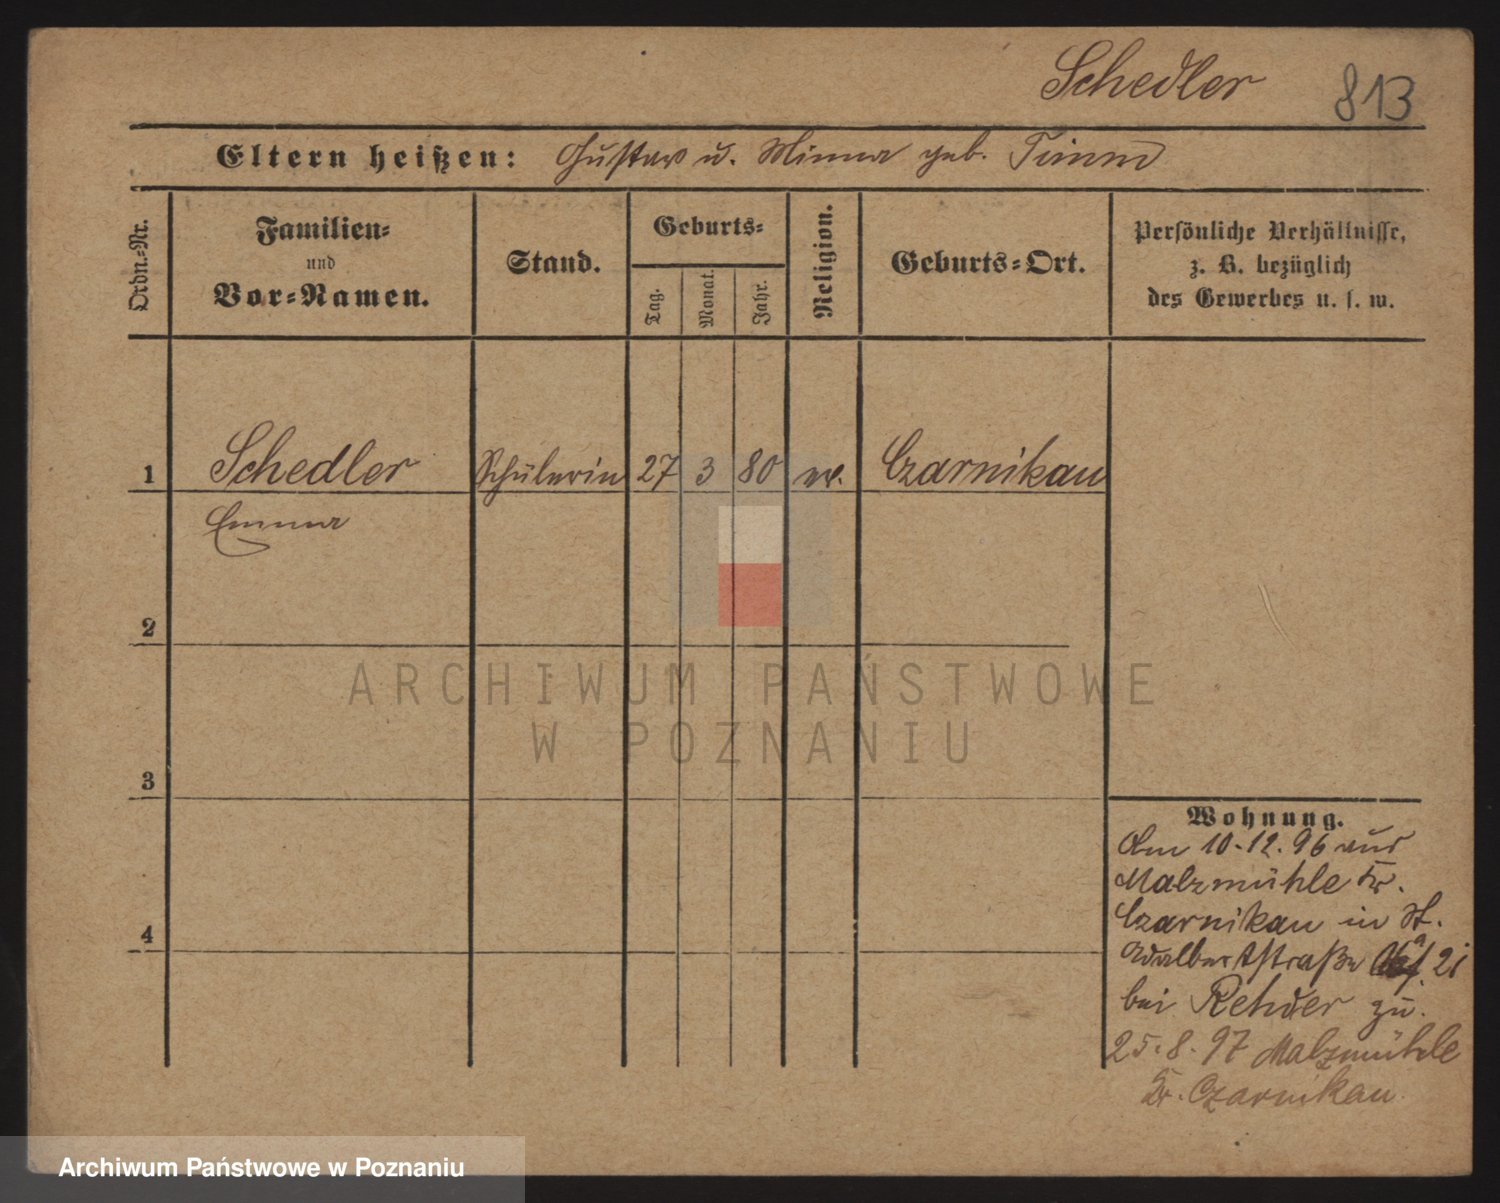 Schedler 813
Eltern heißen: Gustav u. Minna geb. Timm
Ordn.-Nr.
Familien-
und
Vor-Namen.
Stand.
Geburts-
Tag.
Monat.
Jahr.
Religion.
Geburts-Ort.
Persönliche Verhältnisse,
z. B. bezüglich
des Gewerbes u. s. w.
1 Schedler Schülerin 27 3 80 ev. Czarnikau
Emma
2
3
4
Wohnung.
Am 10.12.96 aus
Malzmühle Kr.
Czarnikau in St.
Adalbertstraße 21
bei Rehder zu.
25.8.97 Malzmühle
Kr. Czarnikau.
ARCHIWUM PAŃSTWOWE
W POZNANIU
Archiwum Państwowe w Poznaniu